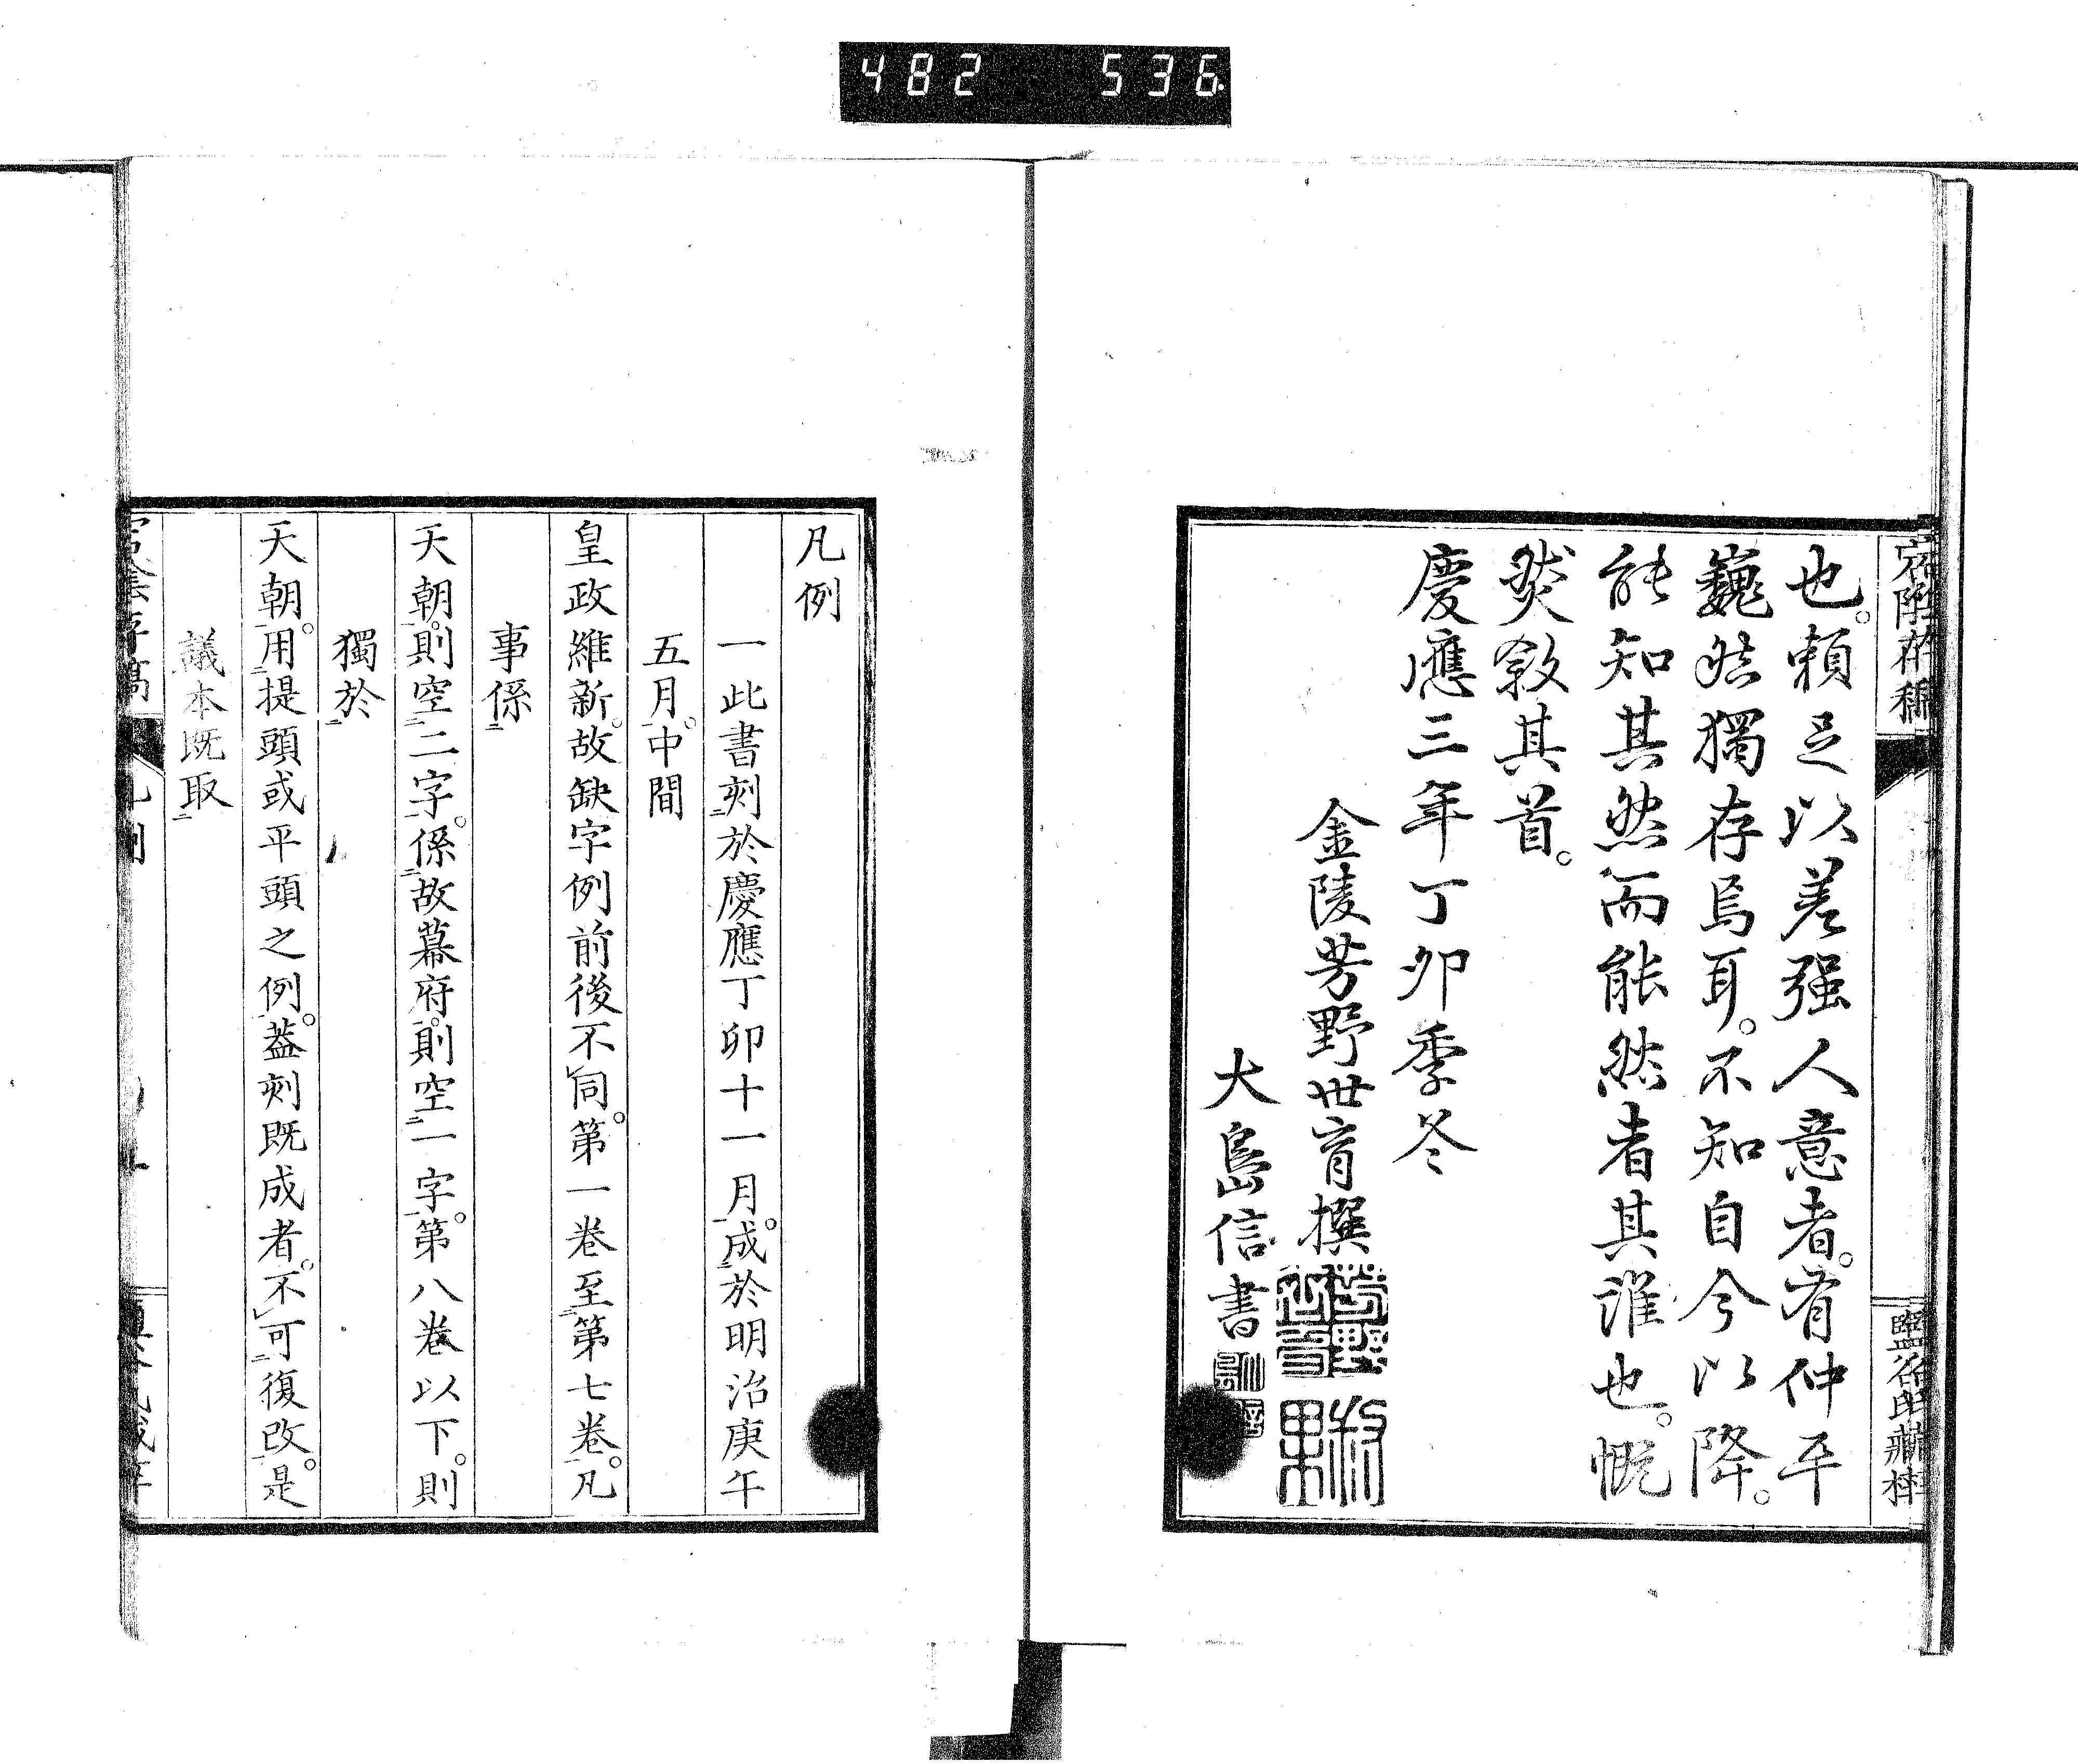 482 536
宕陰存稿
鹽谷氏藏梓
也。賴足以差强人意者。有仲平
巍然獨存焉耳。不知自今以降。
能知其然而能然者其誰也。慨
然敘其首。
慶應三年丁卯季冬
金陵芳野世育撰
大島信書
凡例
一此書刻於慶應丁卯十一月。成於明治庚午
五月。中間
皇政維新。故缺字例前後不同。第一卷至第七卷。凡
事係
天朝。則空二字。係故幕府。則空一字。第八卷以下。則
獨於
天朝。用提頭或平頭之例。蓋刻既成者。不可復改。是
議本既取